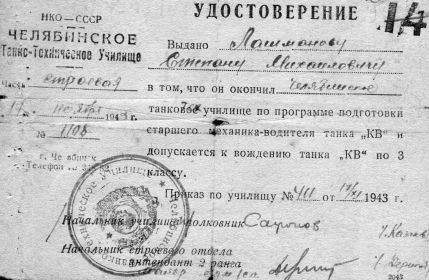 НКО—СССР
ЧЕЛЯБИНСКОЕ
Танко-Техническое Училище
Часть строевая
17 ноября 1943 г.
№ 1108
г. Челябинск
Телефон №
УДОСТОВЕРЕНИЕ
14
Выдано Лашманову
Степану Михайловичу
в том, что он окончил Челябинское
танковое училище по программе подготовки
старшего механика-водителя танка „КВ“ и
допускается к вождению танка „КВ“ по 3
классу.
Приказ по училищу № 411 17/XI 1943 г.
Начальник училища полковник
Начальник строевого отдела
интендант 2 ранга